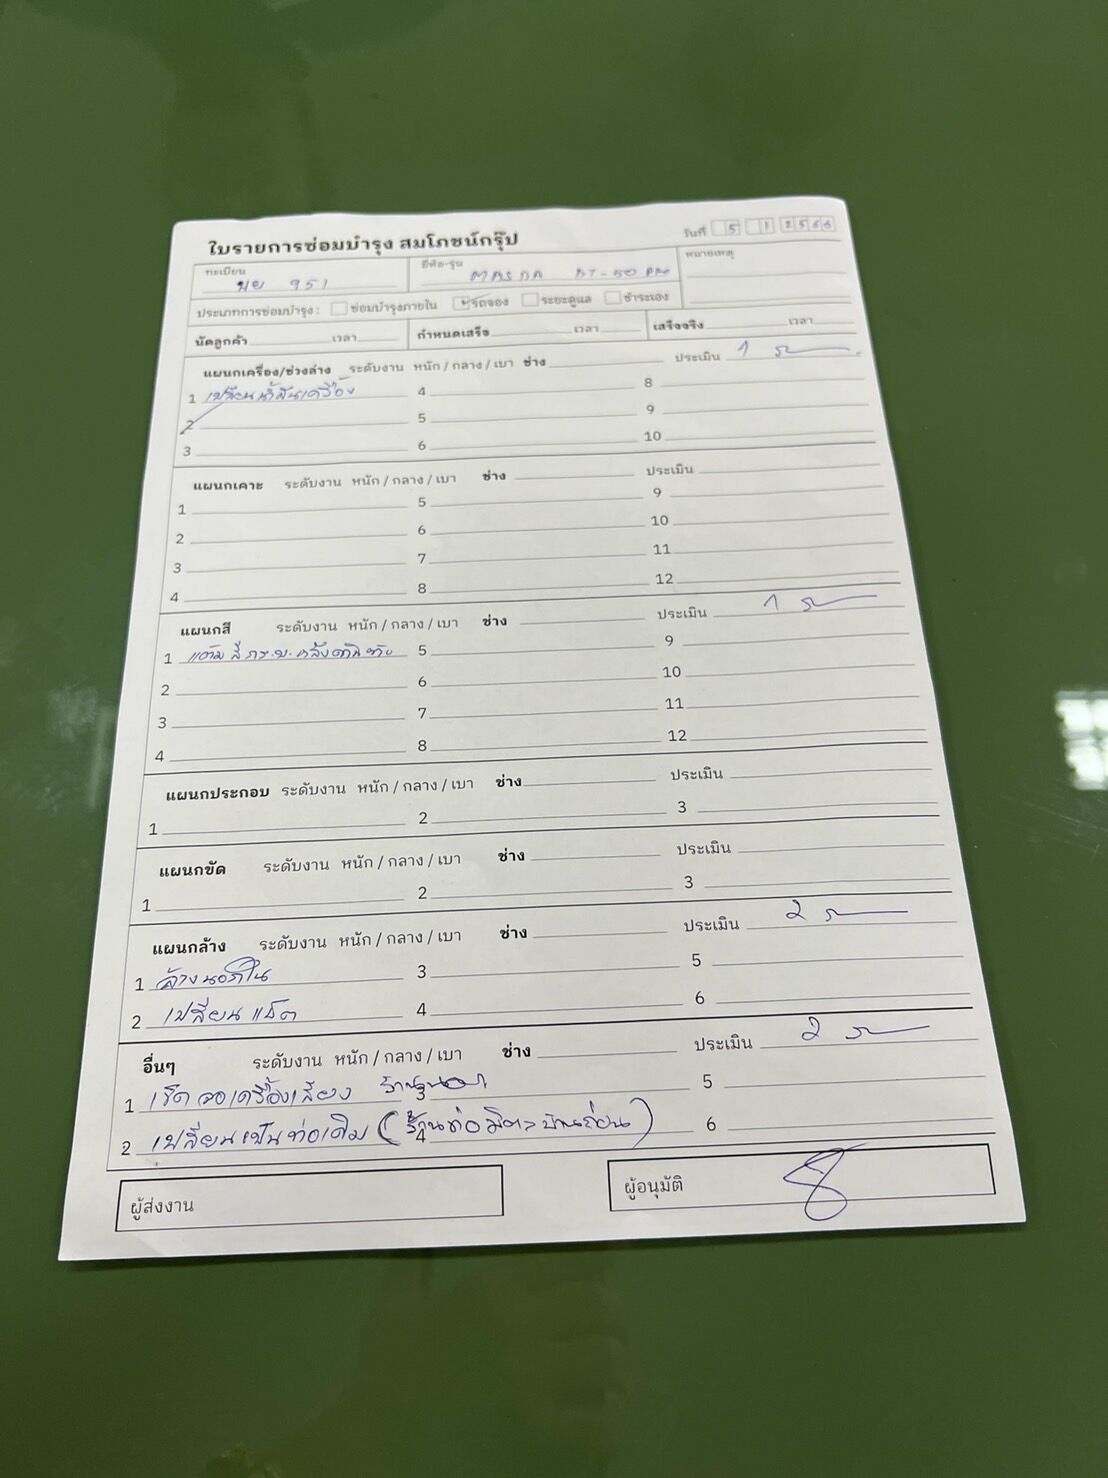 ใบรายการซ่อมบำรุง สมโภชน์กรุ๊ป วันที่ 5 1 2566
ทะเบียน ผย 951 ยี่ห้อ-รุ่น MAZDA BT-50 PRO หมายเหตุ
ประเภทการซ่อมบำรุง : ซ่อมบำรุงภายใน รถจอง ระยะดูแล ชำระเอง
นัดลูกค้า เวลา กำหนดเสร็จ เวลา เสร็จจริง เวลา
แผนกเครื่อง/ช่วงล่าง ระดับงาน หนัก / กลาง / เบา ช่าง ประเมิน 1
1 เปลี่ยนน้ำมันเครื่อง 4 8
2 5 9
3 6 10
แผนกเคาะ ระดับงาน หนัก / กลาง / เบา ช่าง ประเมิน
1 5 9
2 6 10
3 7 11
4 8 12
แผนกสี ระดับงาน หนัก / กลาง / เบา ช่าง ประเมิน 1
1 แต้มสี 5 9
2 6 10
3 7 11
4 8 12
แผนกประกอบ ระดับงาน หนัก / กลาง / เบา ช่าง ประเมิน
1 2 3
แผนกขัด ระดับงาน หนัก / กลาง / เบา ช่าง ประเมิน
1 2 3
แผนกล้าง ระดับงาน หนัก / กลาง / เบา ช่าง ประเมิน 2
1 ล้างนอกใน 3 5
2 เปลี่ยนแบ็ต 4 6
อื่นๆ ระดับงาน หนัก / กลาง / เบา ช่าง ประเมิน 2
1 เช็คจอเครื่องเสียง 3 5
2 เปลี่ยนเป็นท่อเดิม (ร้านท่อ 4 6
ผู้ส่งงาน ผู้อนุมัติ